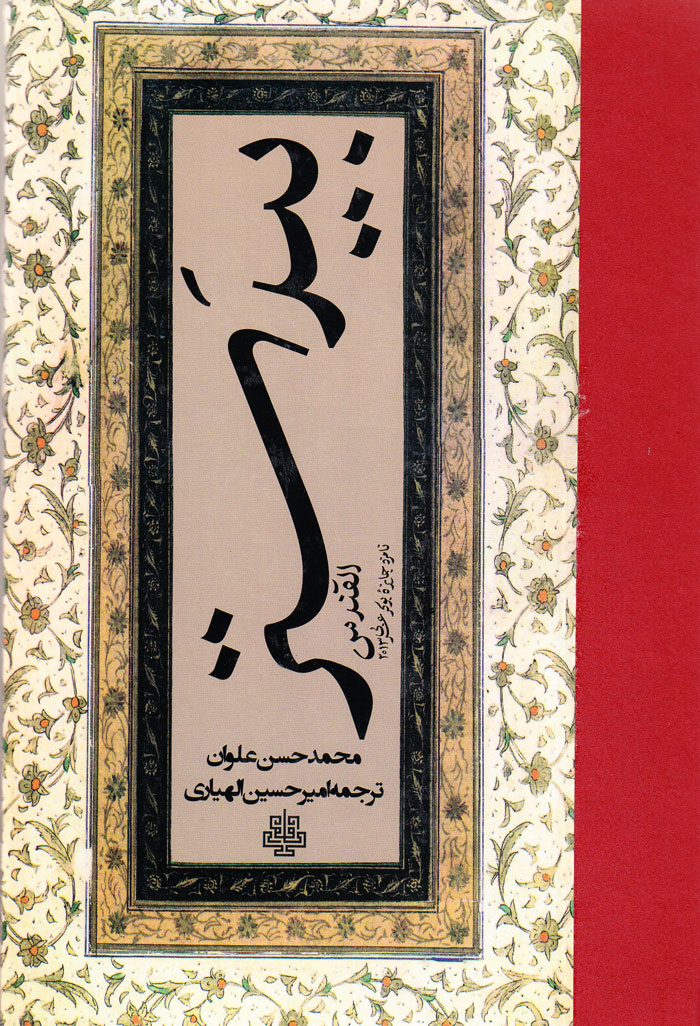 بیدَستر
القندس
نامزد جایزه بوکر عربی ۲۰۱۳
محمدحسن علوان
ترجمه امیرحسین الهیاری